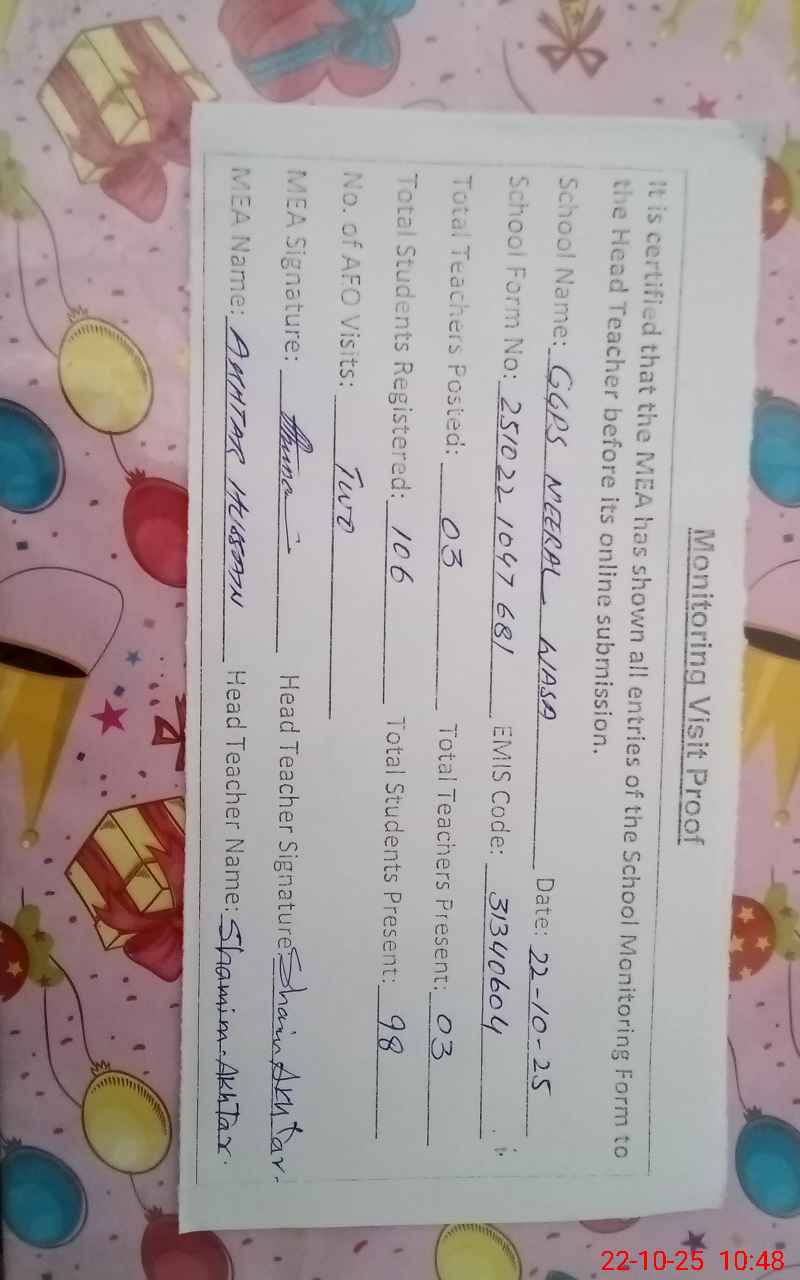 Monitoring Visit Proof
It is certified that the MEA has shown all entries of the School Monitoring Form to
the Head Teacher before its online submission.
School Name: GGPS NEERAL WASA Date: 22-10-25
School Form No: 251022 1047 681 EMIS Code: 31340604
Total Teachers Posted: 03 Total Teachers Present: 03
Total Students Registered: 106 Total Students Present: 98
No. of AEO Visits: TWO
MEA Signature: Head Teacher Signature: Akhtar
MEA Name: AKHTAR HUSSAIN Head Teacher Name: Shamim Akhtar.
22-10-25 10:48